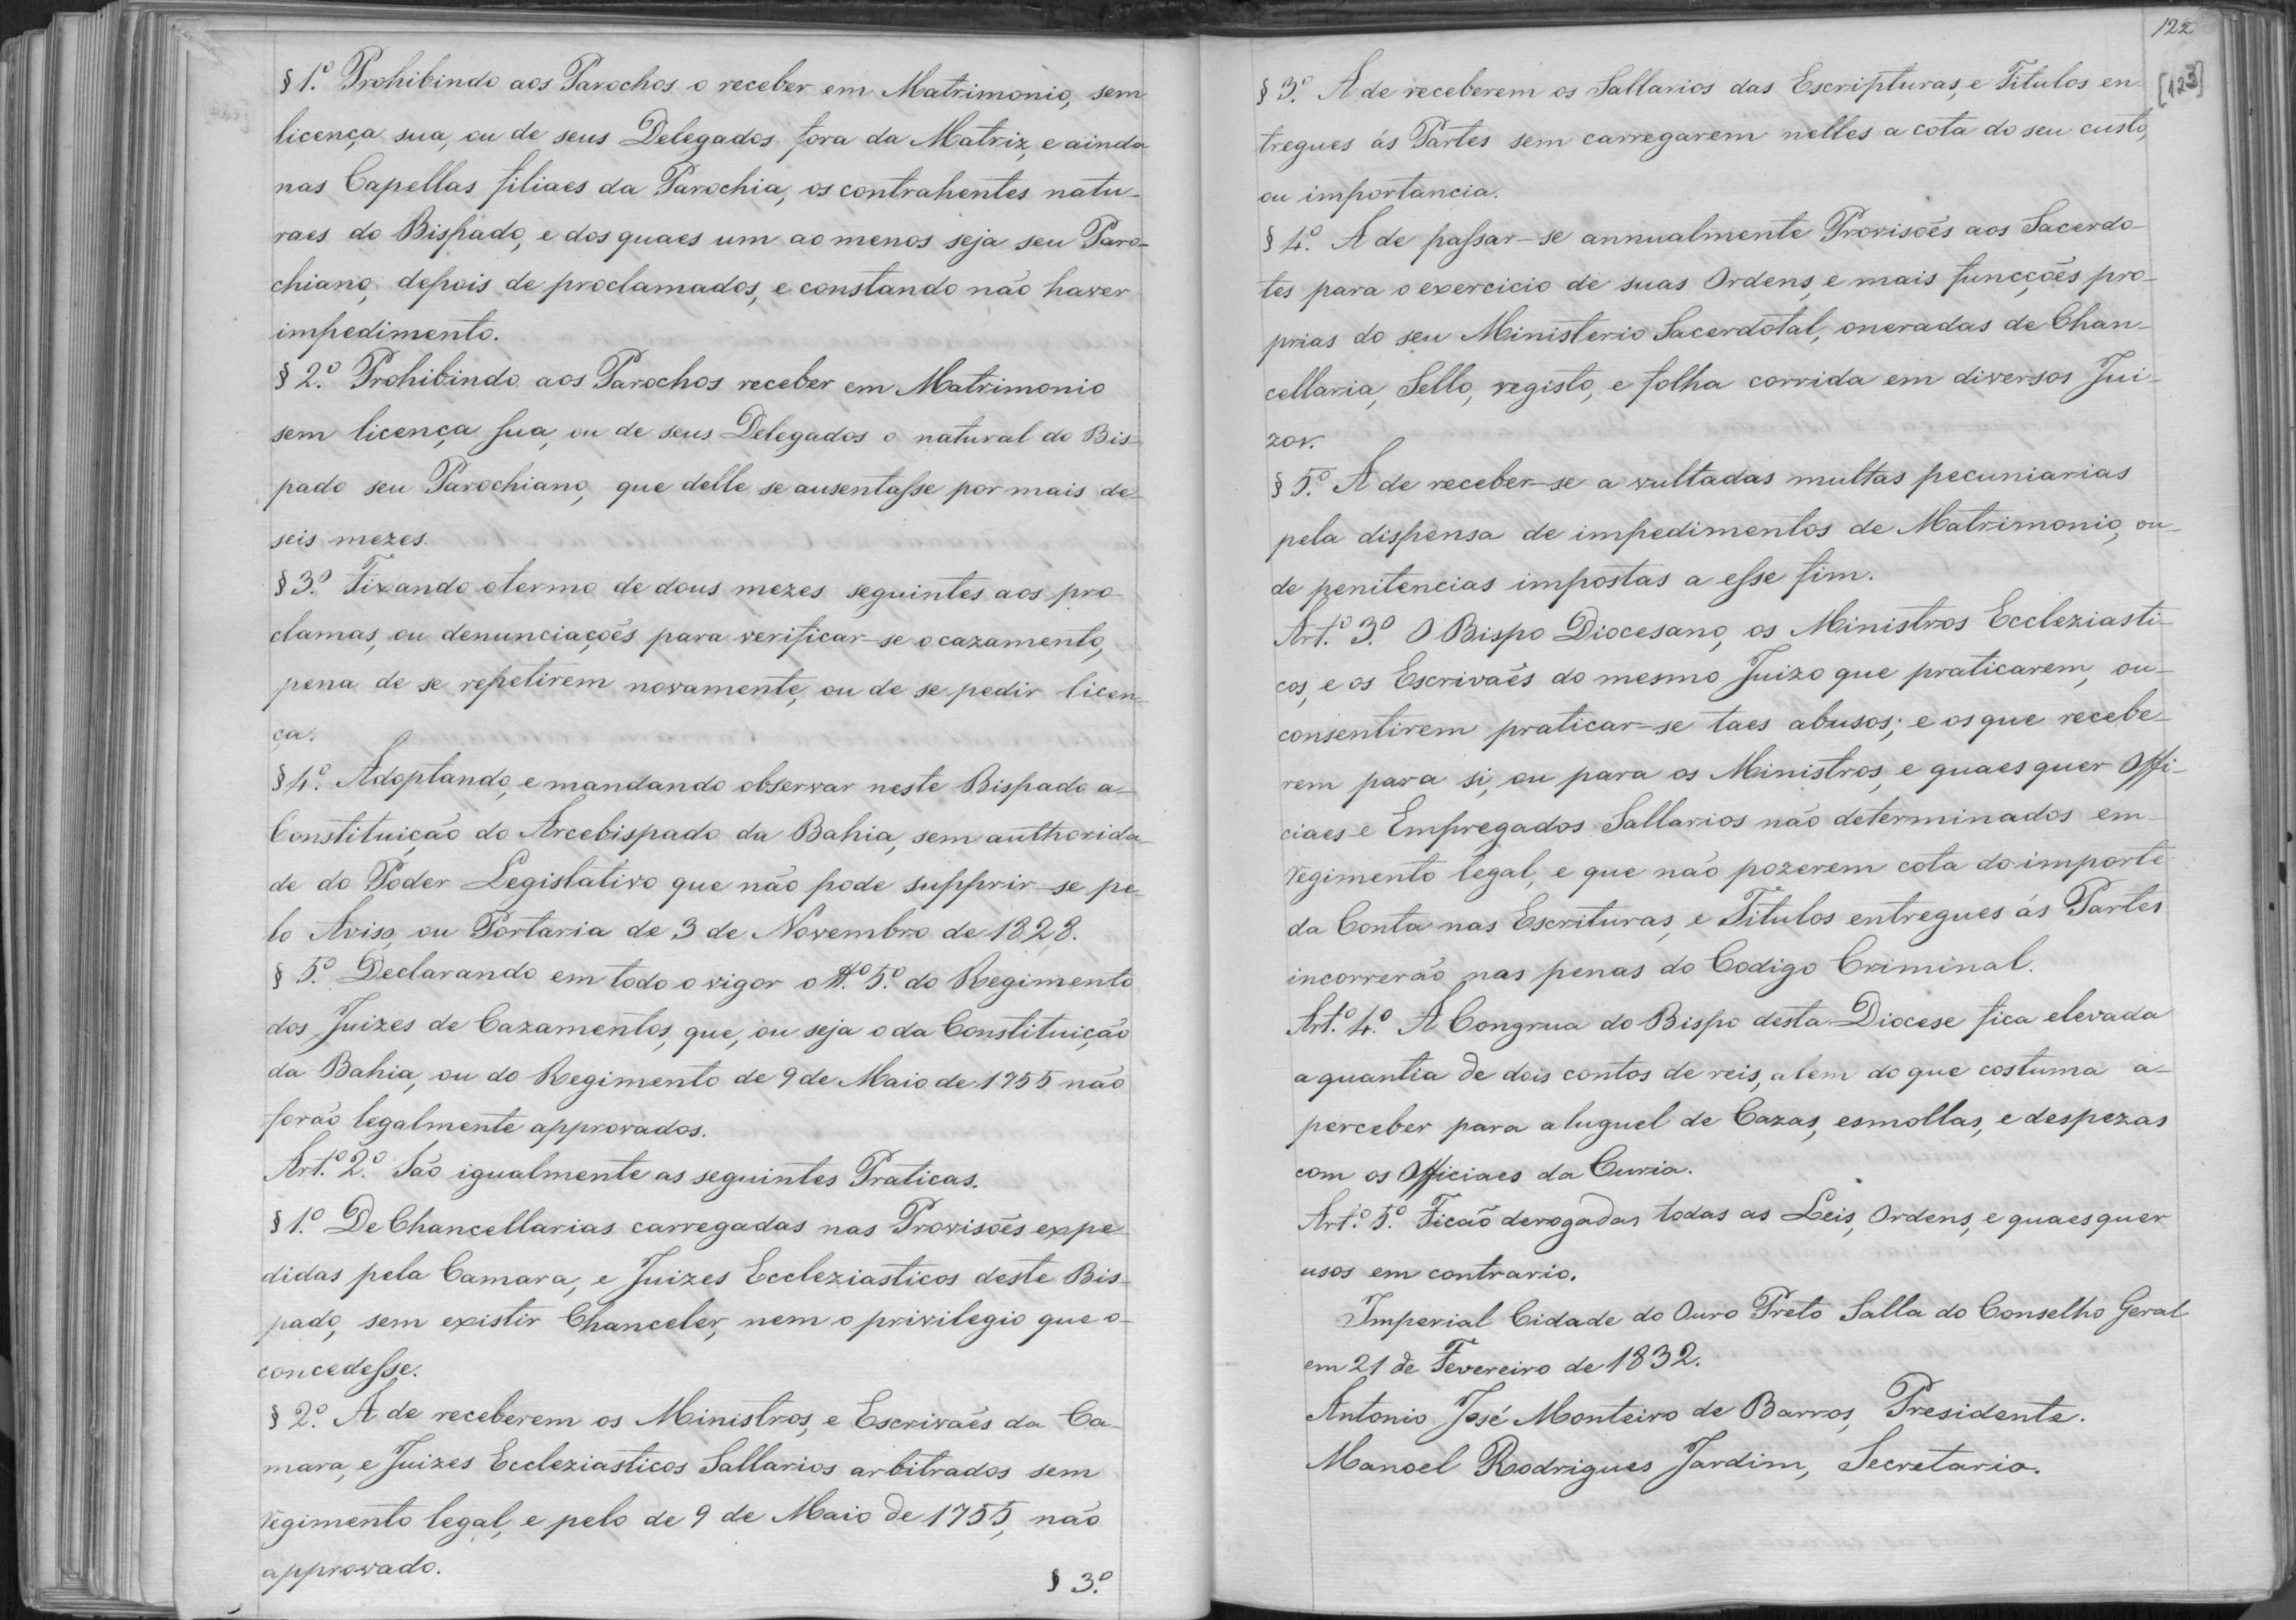 § 1.º Prohibindo aos Parochos o receber em Matrimonio, sem
licença sua, ou de seus Delegados fora da Matriz, e ainda
nas Capellas filiaes da Parochia, os contrahentes natu-
raes do Bispado, e dos quaes um ao menos seja seu Paro-
chiano, depois de proclamados, e constando não haver
impedimento.
§ 2.º Prohibindo aos Parochos receber em Matrimonio
sem licença sua, ou de seus Delegados o natural do Bis-
pado seu Parochiano, que delle se ausentasse por mais de
seis mezes.
§ 3.º Fixando o termo de dous mezes seguintes aos pro-
clamas, ou denunciações para verificar-se o cazamento,
pena de se repetirem novamente, ou de se pedir licen-
ça.
§ 4.º Adoptando, e mandando observar neste Bispado a
Constituição do Arcebispado da Bahia, sem authorida-
de do Poder Legislativo que não pode supprir-se pe-
lo Aviso, ou Portaria de 3 de Novembro de 1828.
§ 5.º Declarando em todo o vigor o §.º 5.º do Regimento
dos Juizes de Cazamentos, que, ou seja o da Constituição
da Bahia, ou do Regimento de 9 de Maio de 1755 não
forão legalmente approvados.
Art.º 2.º São igualmente as seguintes Praticas.
§ 1.º De Chancellarias carregadas nas Provisões expe-
didas pela Camara, e Juizes Ecclesiasticos deste Bis-
pado, sem existir Chanceler, nem o privilegio que o
concedesse.
§ 2.º A de receberem os Ministros, e Escrivães da Ca-
mara, e Juizes Eccleziasticos Sallarios arbitrados sem
regimento legal, e pelo de 9 de Maio de 1755, não
approvado.
§ 3.º
122
[123]
§ 3.º A de receberem os Sallarios das Escripturas, e Titulos en-
tregues ás Partes sem carregarem nelles a cota do seu custo,
ou importancia.
§ 4.º A de passar-se annualmente Provisões aos Sacerdo-
tes para o exercicio de suas Ordens, e mais funcções pro-
prias do seu Ministerio Sacerdotal, oneradas de Chan-
cellaria, Sello, registo, e folha corrida em diversos Jui-
zos.
§ 5.º A de receber-se a vultadas multas pecuniarias
pela dispensa de impedimentos de Matrimonio, ou
de penitencias impostas a esse fim.
Art.º 3.º O Bispo Diocesano, os Ministros Eccleziasti-
cos, e os Escrivães do mesmo Juizo que praticarem, ou
consentirem praticar-se taes abusos; e os que recebe-
rem para si, ou para os Ministros, e quaes quer Offi-
ciaes e Empregados Sallarios não determinados em
regimento legal, e que não pozerem cota do importe
da Conta nas Escrituras, e Titulos entregues ás Partes
incorrerão nas penas do Codigo Criminal.
Art.º 4.º A Congrua do Bispo desta Diocese fica elevada
a quantia de dois contos de reis, alem do que costuma a
perceber para aluguel de Cazas, esmollas, e despezas
com os Officiaes da Curia.
Art.º 5.º Ficão derogadas todas as Leis, Ordens, e quaesquer
usos em contrario.
Imperial Cidade do Ouro Preto Salla do Conselho Geral
em 21 de Fevereiro de 1832.
Antonio José Monteiro de Barros, Presidente.
Manoel Rodrigues Jardim, Secretario.